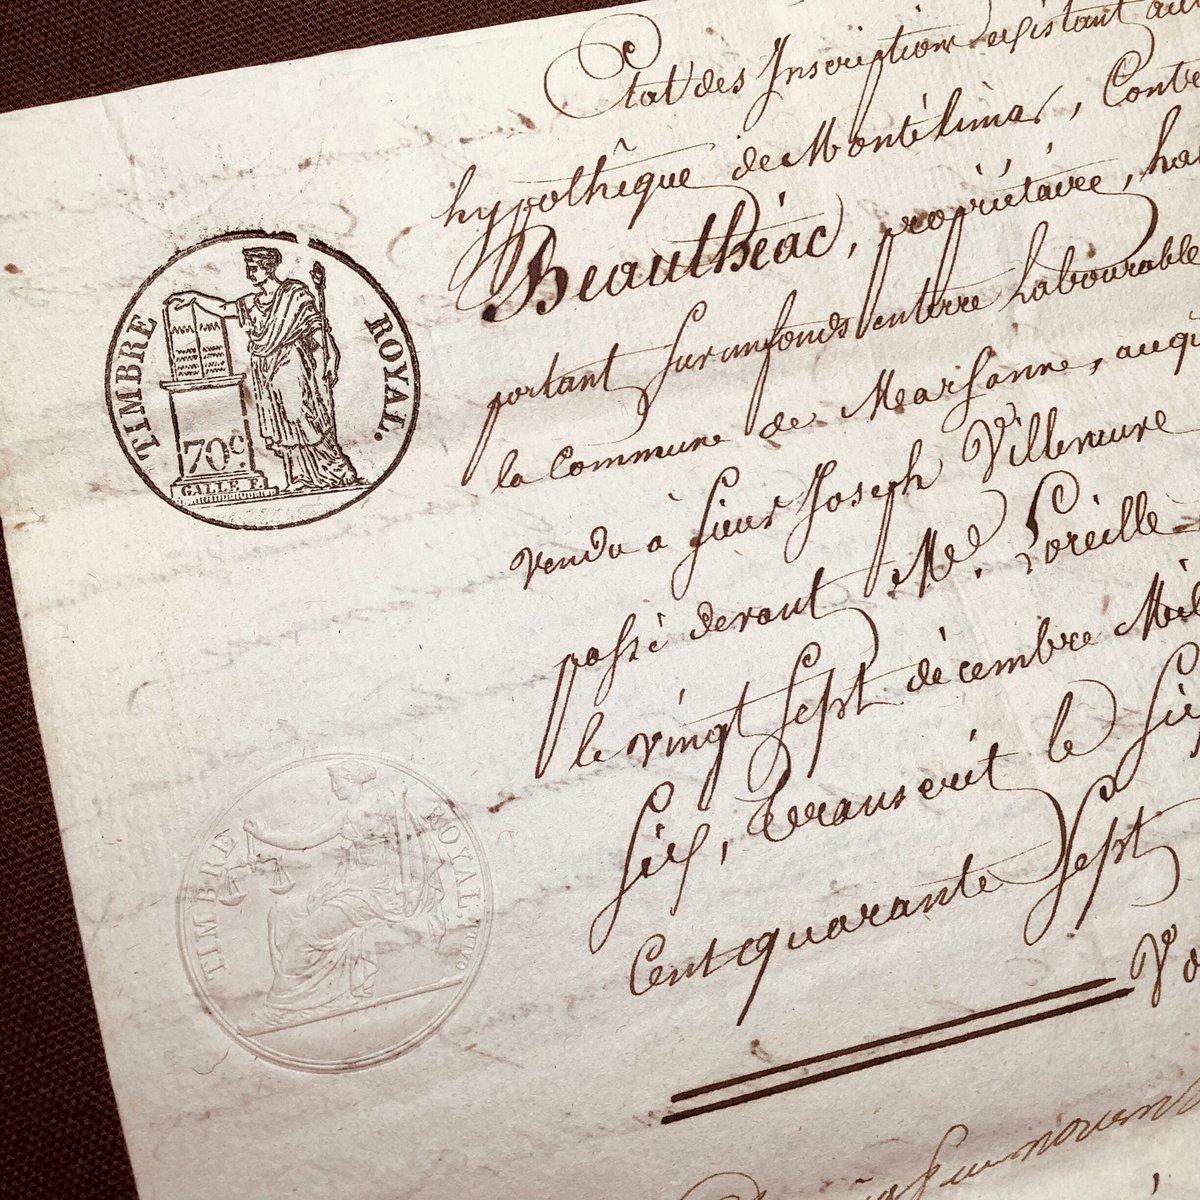 Etat des Inscriptions existant au
hypothêque de Montélimar, Contre
Beauthéac, propriétaire, ha
portant sur un fonds en terre labourable
la Commune de Marsanne, auqu
vendu à sieur Joseph Villeneuve
passé devant Me. Loreille
le vingt sept décembre Mil
six, transcrit le six
Cent quarante sept
Vo
TIMBRE ROYAL.
70c.
GALLE F.
TIMBRE ROYAL.